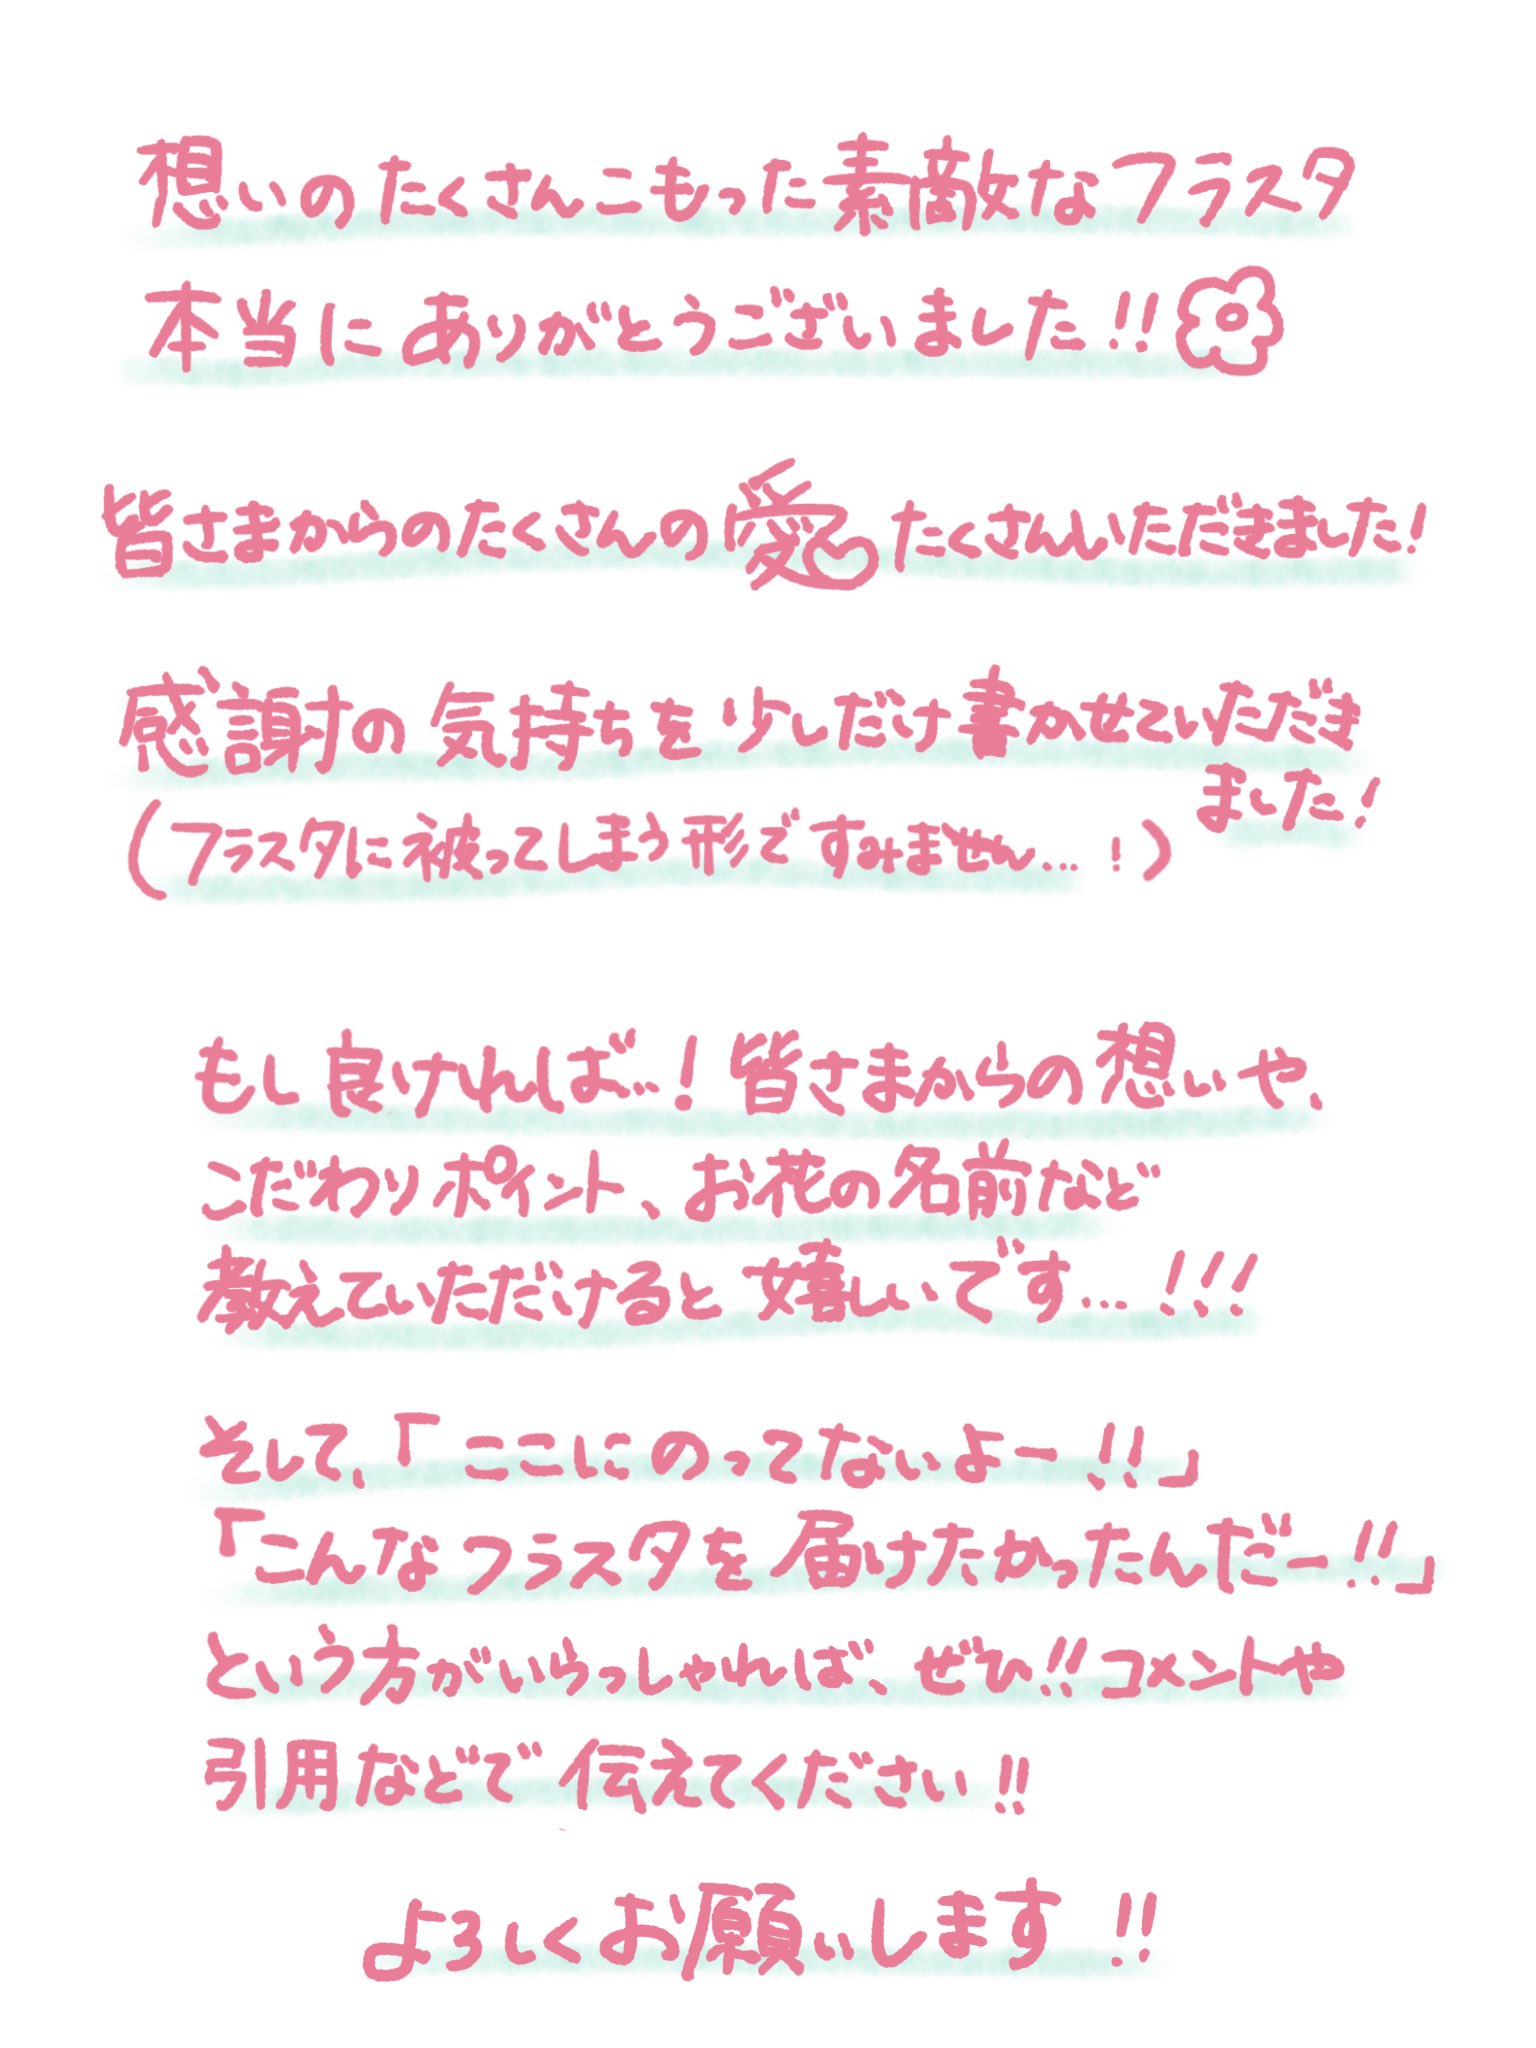 想いのたくさんこもった素敵なフラスタ
本当にありがとうございました!!
皆さまからのたくさんの愛たくさんいただきました!
感謝の気持ちを少しだけ書かせていただき
ました!
(フラスタに被ってしまう形ですみません…!)
もし良ければ…!皆さまからの想いや、
こだわりポイント、お花の名前など
教えていただけると嬉しいです…!!!
そして、「ここにのってないよー!!」
「こんなフラスタを届けたかったんだー!!」
という方がいらっしゃれば、ぜひ!!コメントや
引用などで伝えてください!!
よろしくお願いします!!